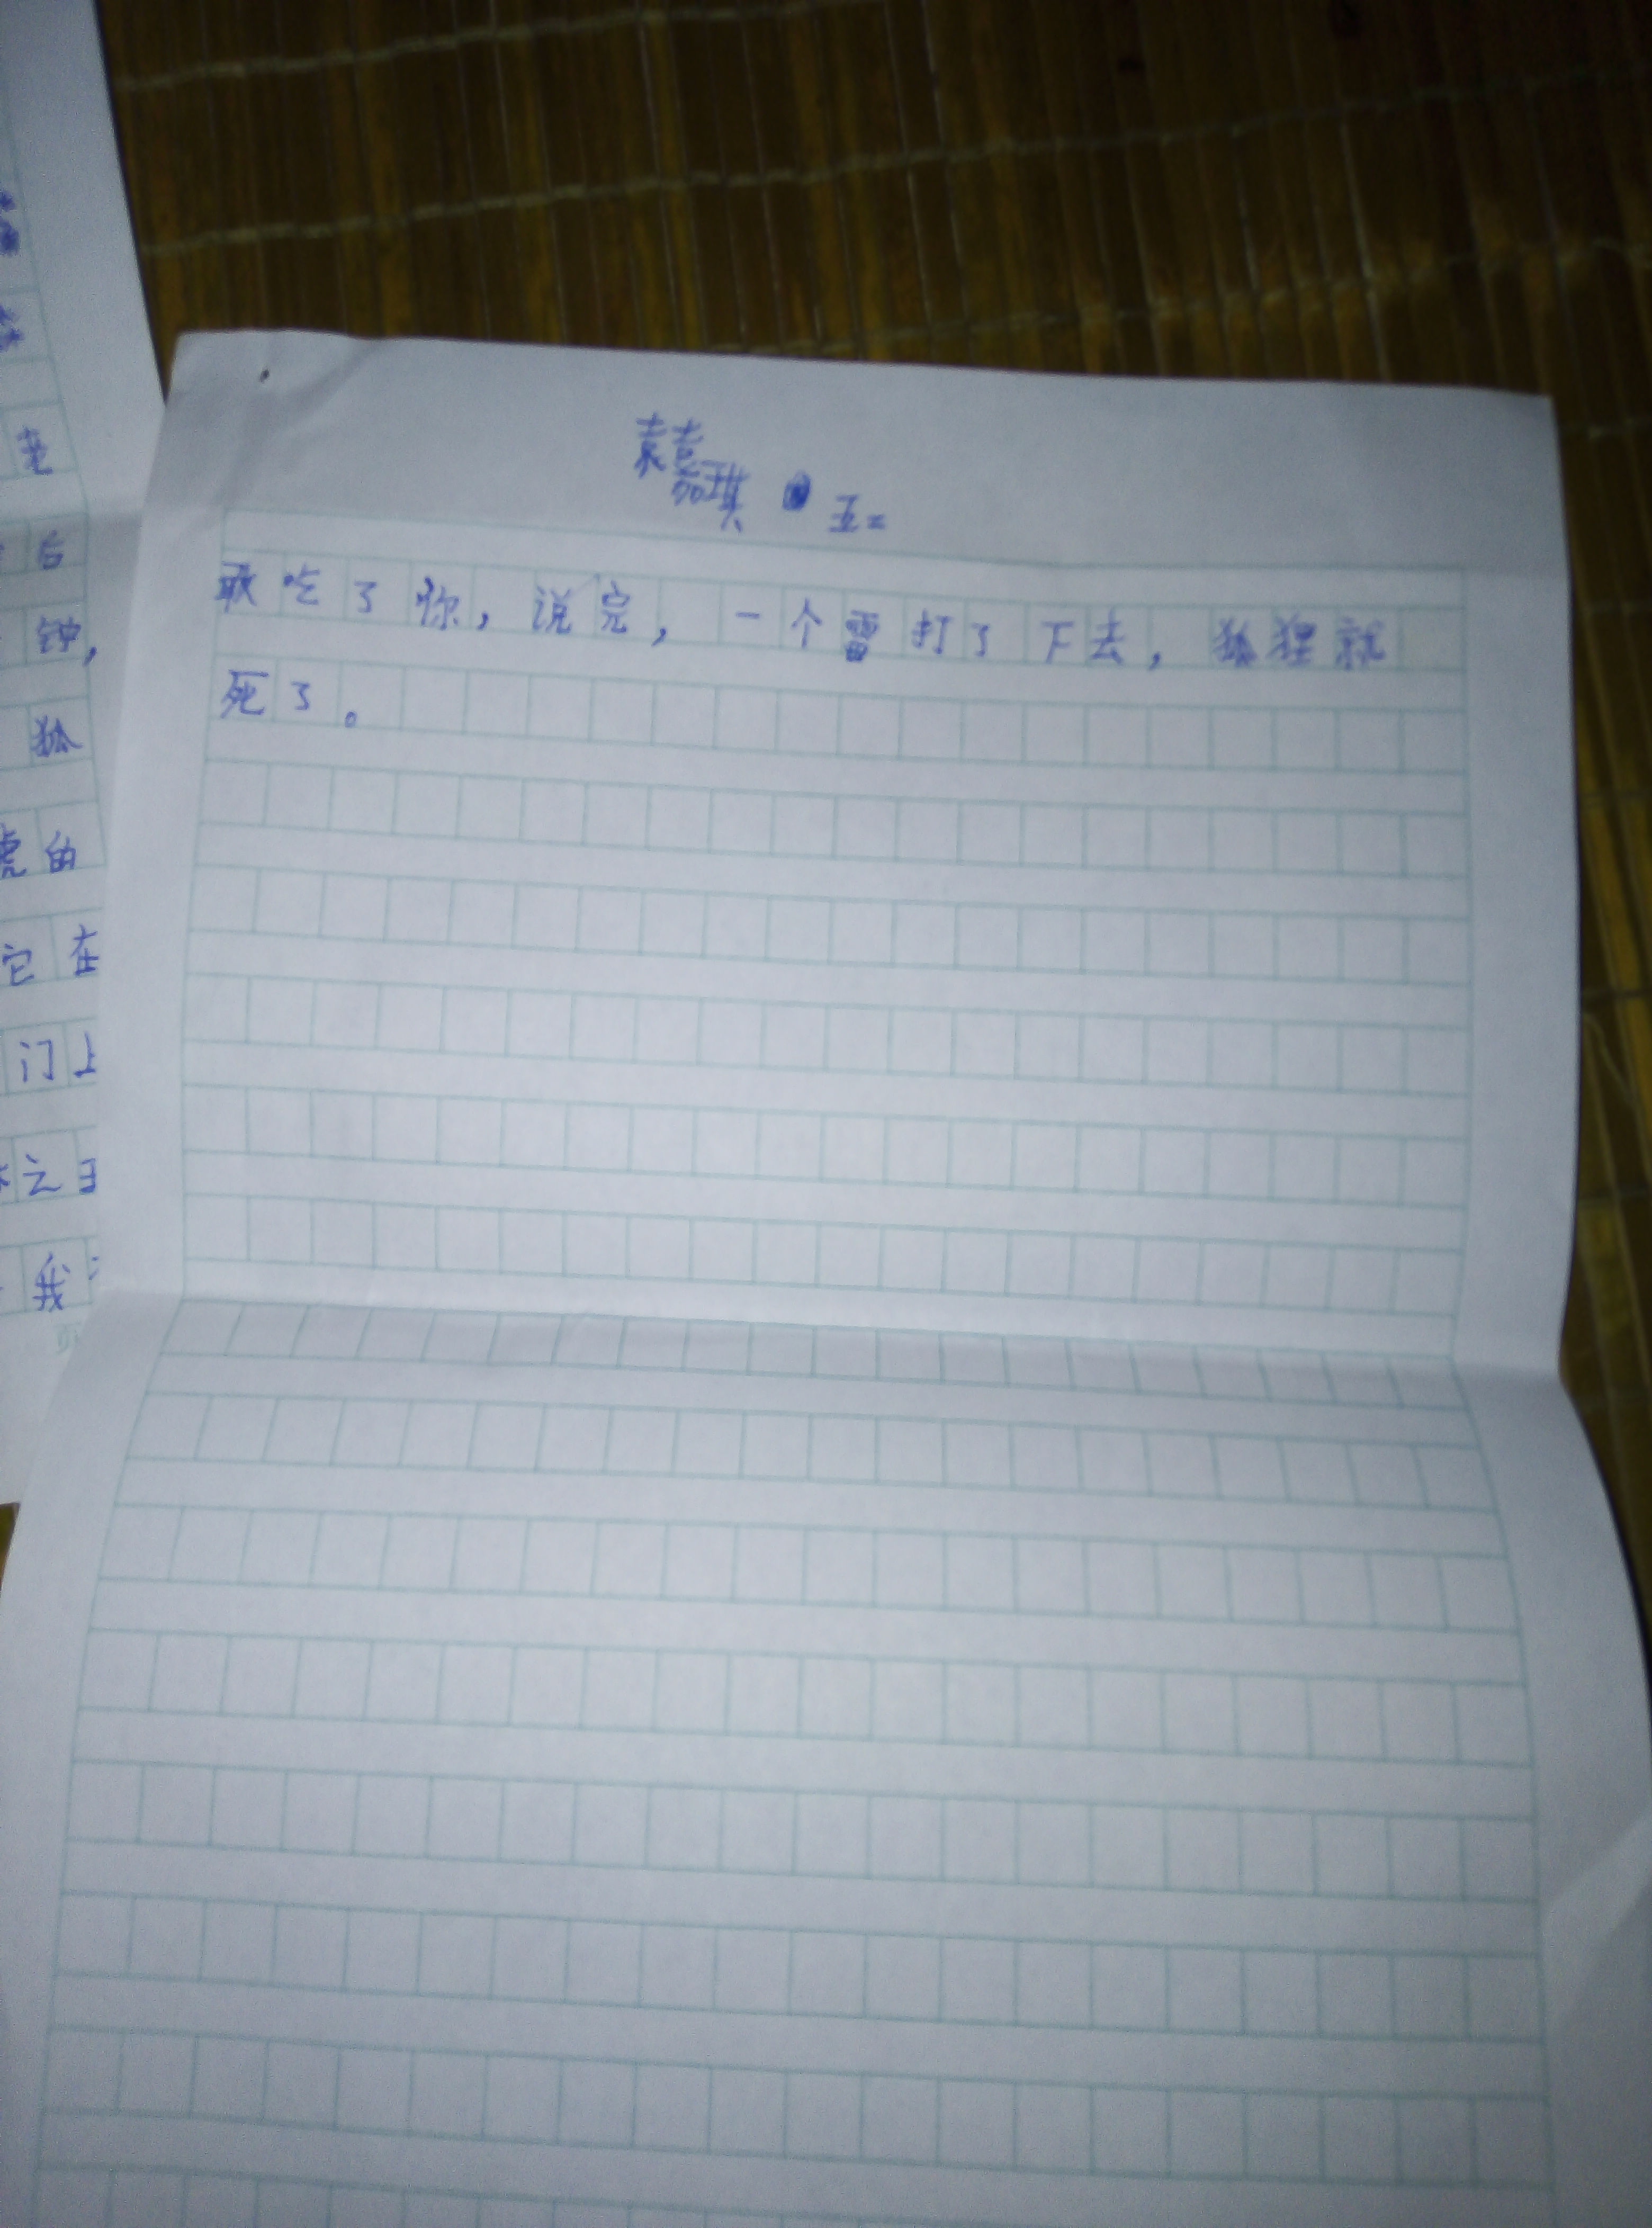 袁嘉琪 五二
敢吃了你，说完，一个雷打了下去，狐狸就
死了。
后
钟，
狐
虎的
它在
门上
之王
我
页